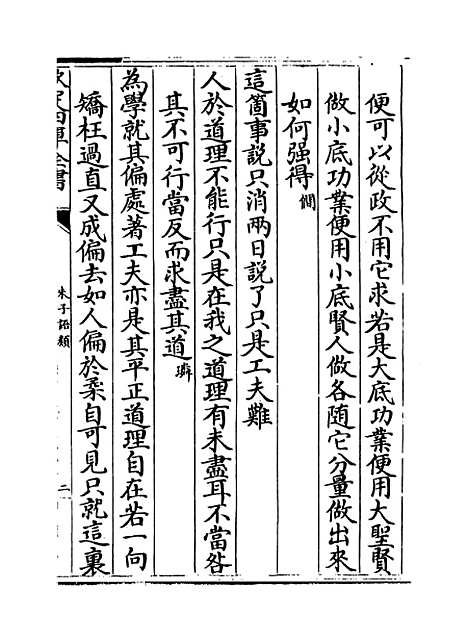 便可以從政不用它求若是大底功業便用大聖賢
做小底功業便用小底賢人做各随它分量做出來
如何强得僩
這箇事説只消兩日説了只是工夫難
人於道理不能行只是在我之道理有未盡耳不當咎
其不可行當反而求盡其道璘
為學就其偏處著工夫亦是其平正道理自在若一向
矯枉過直又成偏去如人偏於柔自可見只就這裏
欽定四庫全書
朱子語類
二